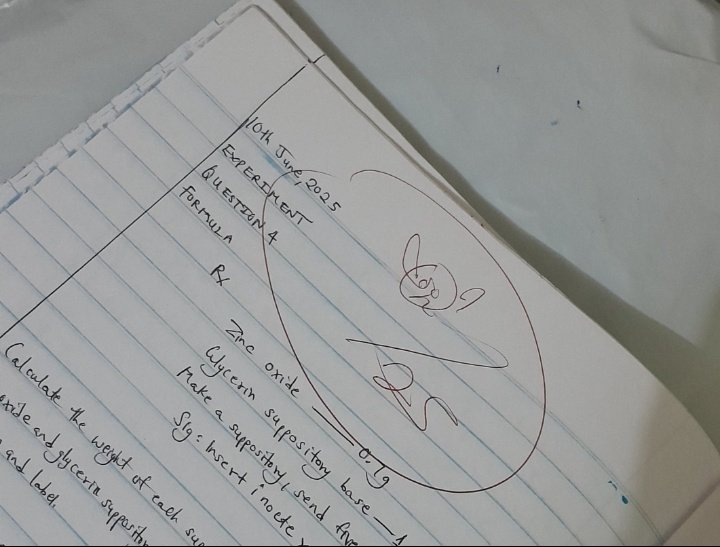 10th June, 2025
EXPERIMENT
QUESTION 4
FORMULA
Rx
Zinc oxide — 0.7g
Glycerin suppository base — 1
Make a suppository, send five
Sig: Insert i nocte
25
Calculate the weight of each sup
oxide and glycerin suppository
and label.